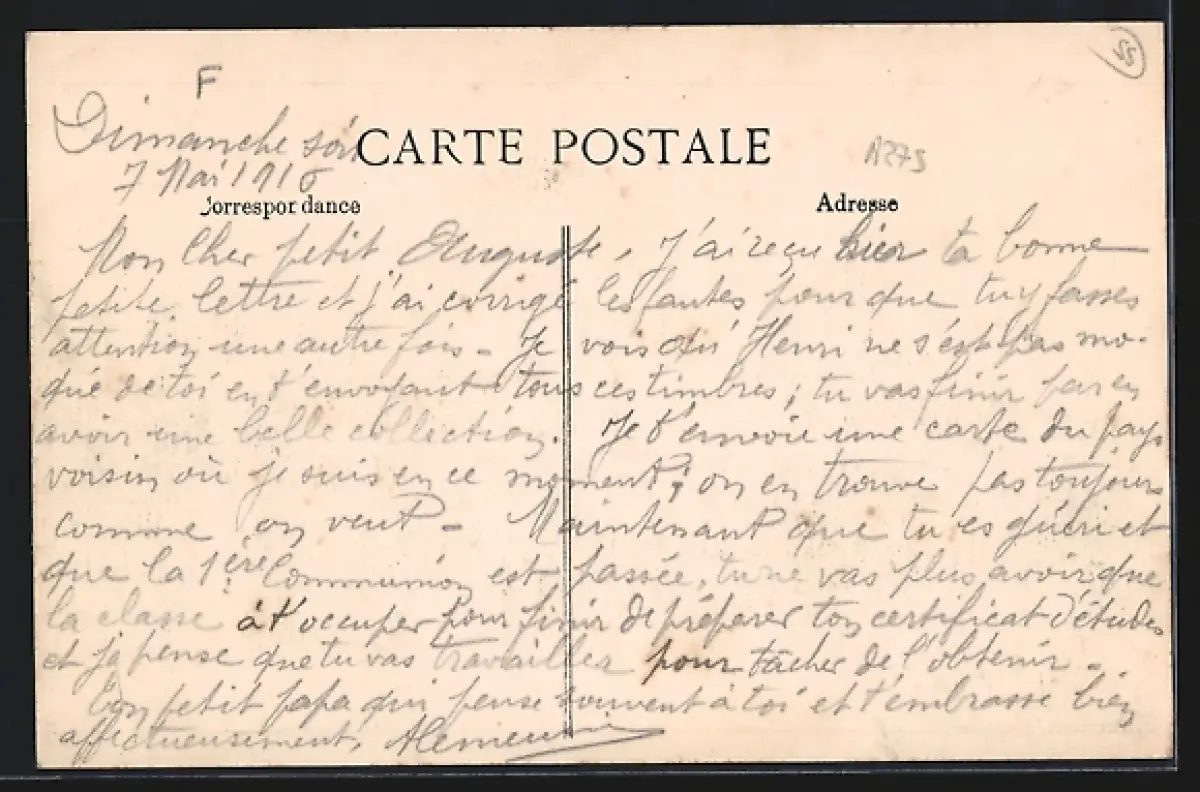 55
F
Dimanche soir
CARTE POSTALE
A275
7 Mai 1916
Correspondance
Adresse
Mon cher petit Auguste, J'ai reçu hier ta bonne
petite lettre et j'ai corrigé les fautes pour que tu y fasses
attention une autre fois - Je vois qu'Henri ne s'est pas mo-
qué de toi en t'envoyant tous ces timbres ; tu vas finir par en
avoir une belle collection. Je t'envoie une carte du pays
voisin où je suis en ce moment ; on en trouve pas toujours
comme on veut - Maintenant que tu es guéri et
que la 1ère Communion est passée, tu ne vas plus avoir que
la classe à t'occuper pour finir de préparer ton certificat d'études
et je pense que tu vas travailler pour tâcher de l'obtenir -
Ton petit papa qui pense souvent à toi et t'embrasse bien
affectueusement,